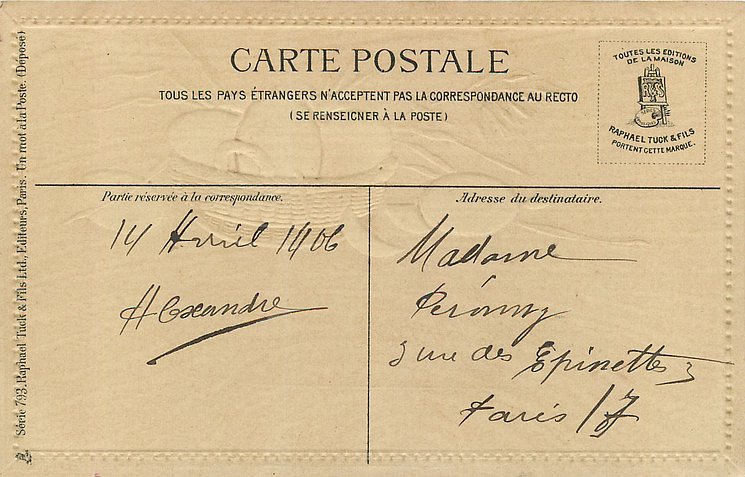 CARTE POSTALE
TOUS LES PAYS ÉTRANGERS N'ACCEPTENT PAS LA CORRESPONDANCE AU RECTO
(SE RENSEIGNER À LA POSTE)
TOUTES LES EDITIONS
DE LA MAISON
RAPHAEL TUCK & FILS
PORTENT CETTE MARQUE.
Série 793. Raphael Tuck & Fils Ltd., Editeurs, Paris. Un mot à la Poste. (Déposé)
Partie réservée à la correspondance.
14 Avril 1906
Alexandre
Adresse du destinataire.
Madame
3 rue des Epinettes
Paris 17